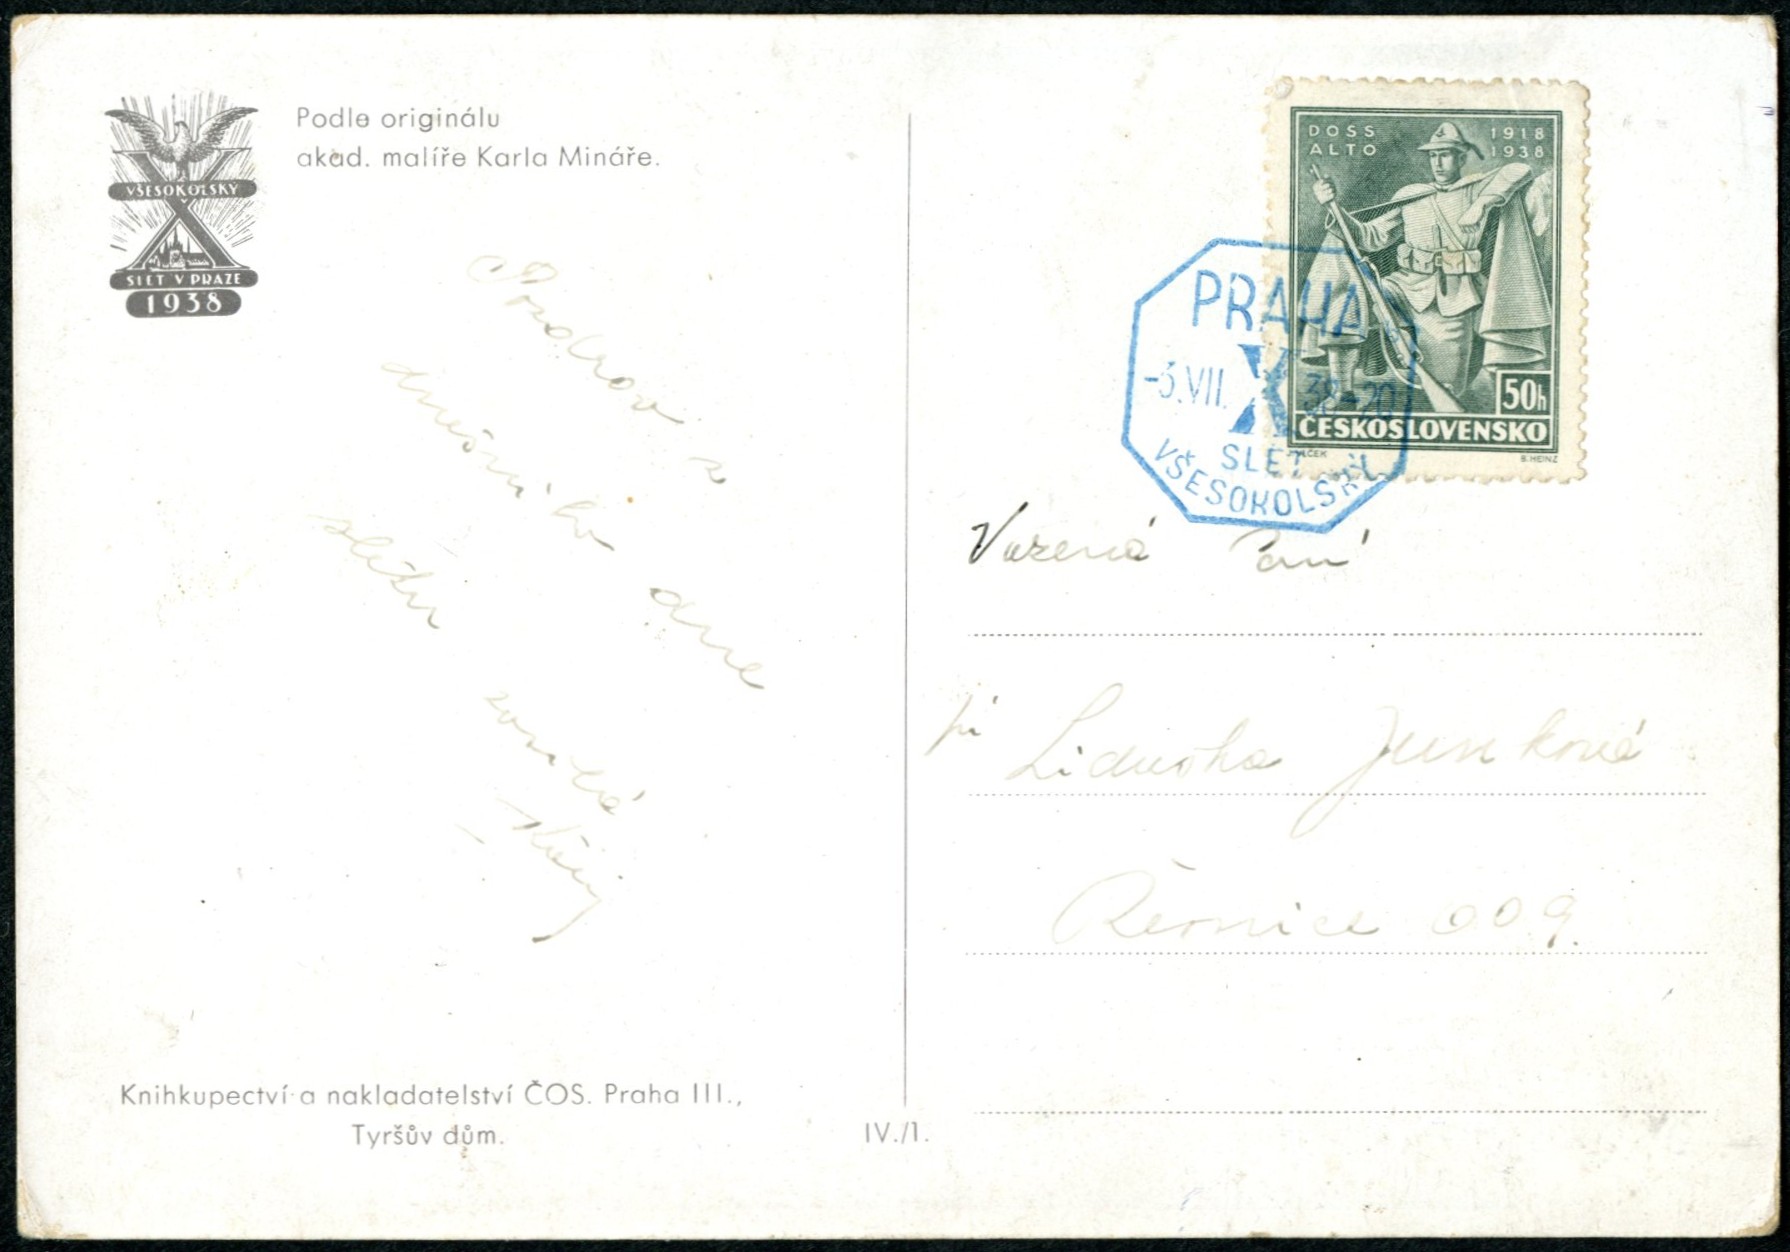 Podle originálu
akad. malíře Karla Mináře.
VŠESOKOLSKÝ
X
SLET V PRAZE
1938
Pozdrav z
dnešního dne
sletu
Knihkupectví a nakladatelství ČOS. Praha III.,
Tyršův dům.
IV./1.
DOSS
ALTO
1918
1938
50h
ČESKOSLOVENSKO
B. HEINZ
PRAHA
-3.VII. X 38-20
SLET
VŠESOKOLSKÝ
Vážená Paní
pí Liduška Junková